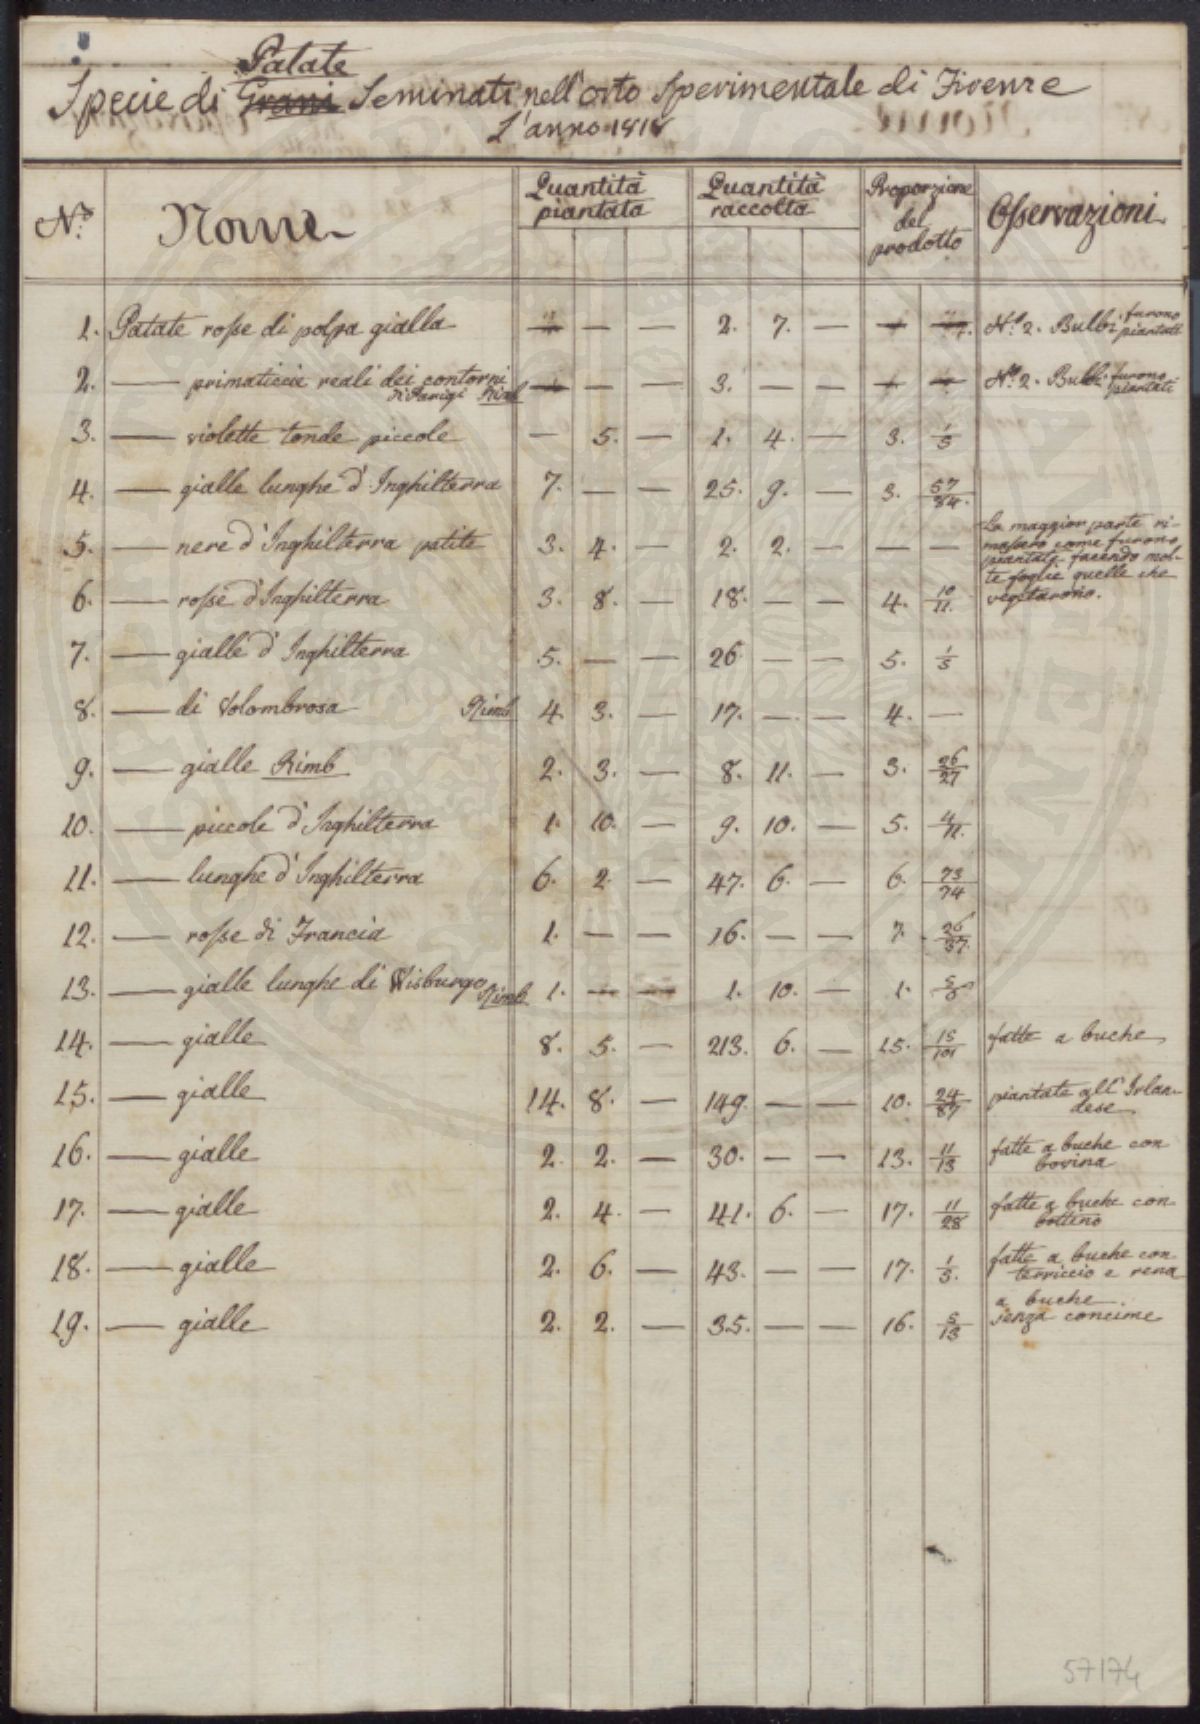 Patate
Specie di Grani Seminati nell'orto Sperimentale di Firenze
L'anno 1818
N.° Nome Quantità piantata Quantità raccolta Proporzione del prodotto Osservazioni
1. Patate rosse di polpa gialla — — — 2. 7. — N.° 2. Bulbi furono piantati
2. — primaticcie reali dei contorni di Parigi Rimb — — — 3. — — N.° 2. Bulbi furono piantati
3. — violette tonde piccole — 5. — 1. 4. — 3. 1/5
4. — gialle lunghe d'Inghilterra 7. — — 25. 9. — 3. 57/84.
5. — nere d'Inghilterra patite 3. 4. — 2. 2. — — — La maggior parte ri-
masero come furono
piantate facendo mol-
te foglie quelle che
vegetarono.
6. — rosse d'Inghilterra 3. 8. — 18. — — 4. 10/11.
7. — gialle d'Inghilterra 5. — — 26 — — 5. 1/5
8. — di Volombrosa Rimb 4. 3. — 17. — — 4. —
9. — gialle Rimb 2. 3. — 8. 11. — 3. 26/27
10. — piccole d'Inghilterra 1. 10. — 9. 10. — 5. 4/11.
11. — lunghe d'Inghilterra 6. 2. — 47. 6. — 6. 73/74
12. — rosse di Francia 1. — — 16. — — 7. 26/37.
13. — gialle lunghe di Wisburgo Rimb 1. — — 1. 10. — 1.
14. — gialle 8. 5. — 213. 6. — 25. 15/101 fatte a buche
15. — gialle 14. 8. — 149. — — 10. 24/87 piantate all'Irlan-
dese
16. — gialle 2. 2. — 30. — — 13. 11/13 fatte a buche con
bovina
17. — gialle 2. 4. — 41. 6. — 17. 11/28 fatte a buche con
bottino
18. — gialle 2. 6. — 43. — — 17. 1/5. fatte a buche con
terriccio e rena
19. — gialle 2. 2. — 35. — — 16. 5/13 a buche
senza concime
57174